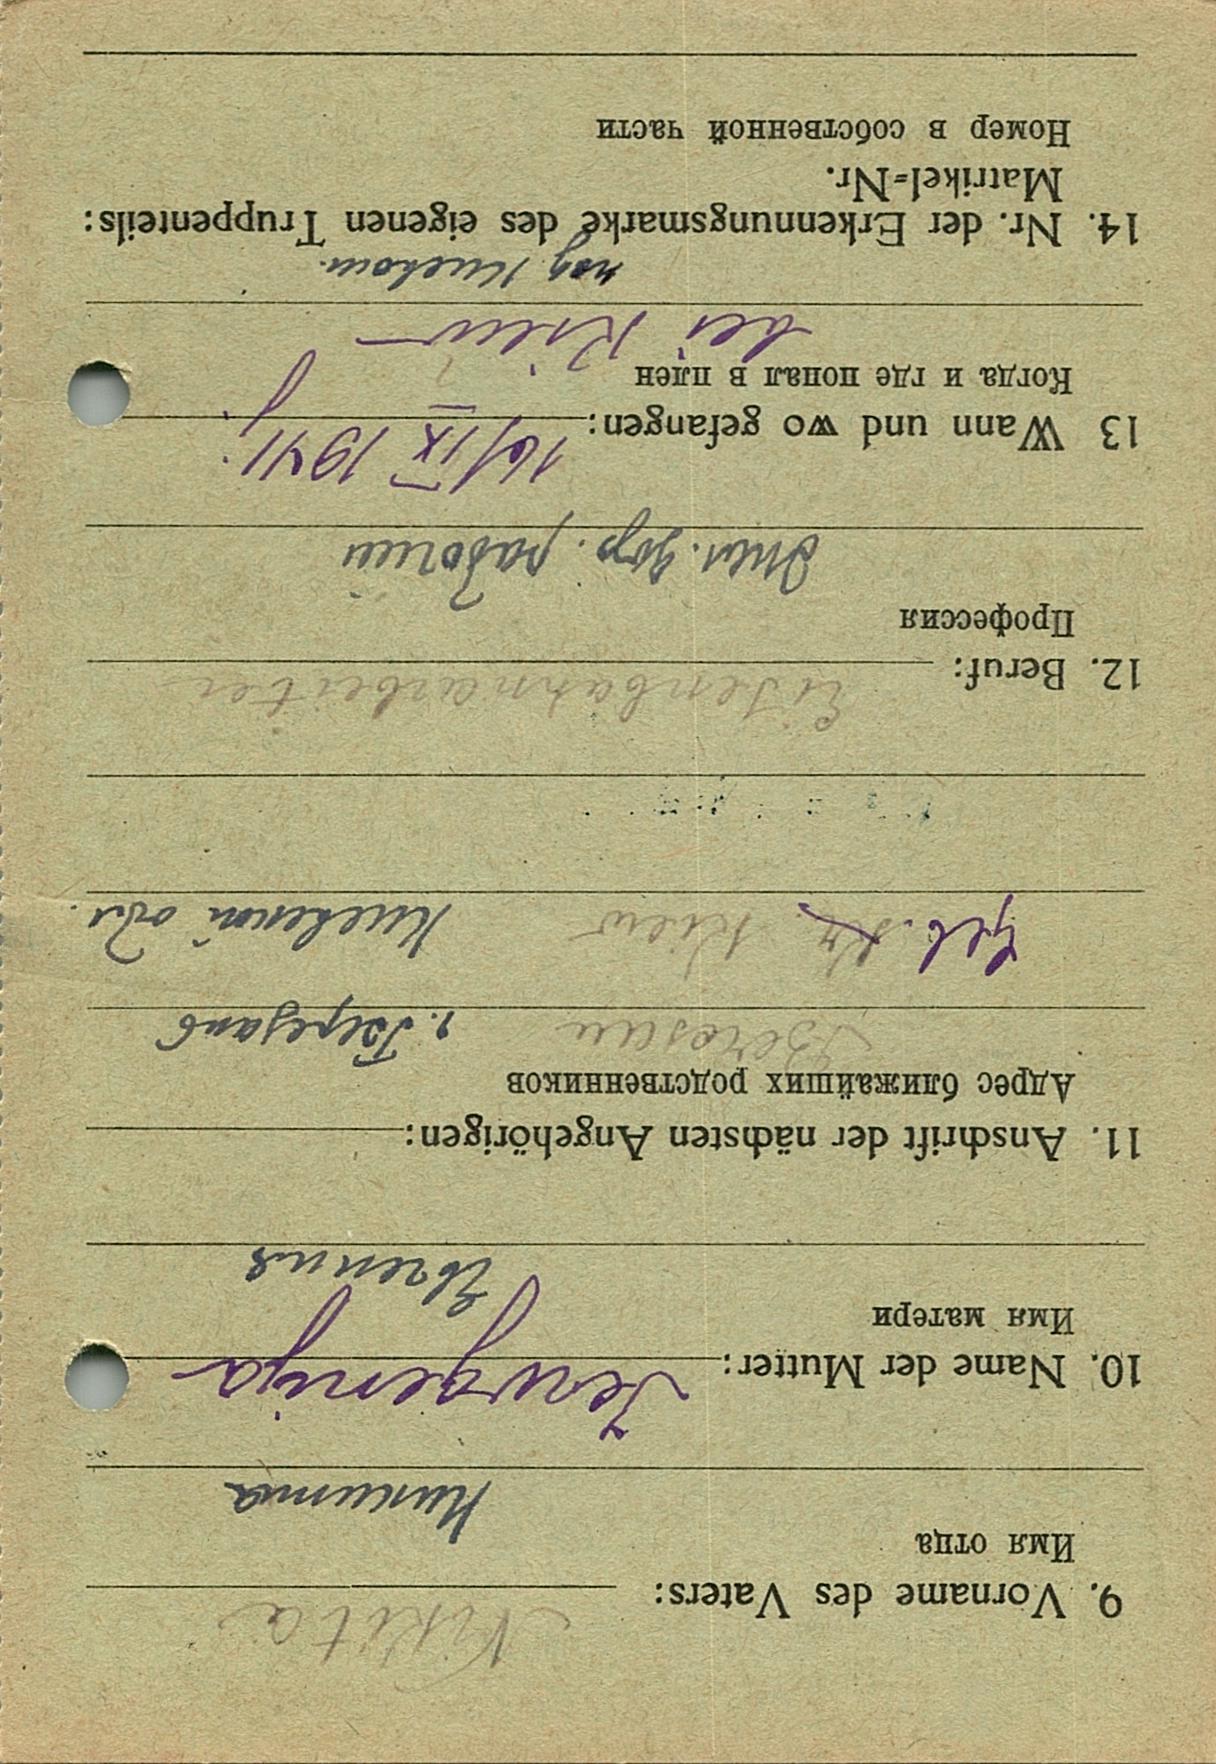 Nikita
9. Vorname des Vaters:
Имя отца
Никита
10. Name der Mutter: Jewgenija
Имя матери
Евгения
11. Anschrift der nächsten Angehörigen:
Адрес ближайших родственников
Beresan г. Березань
Geb. Kiew Киевской обл.
12. Beruf: Eisenbahnarbeiter
Профессия
жел. дор. рабочий
13 Wann und wo gefangen: 16/IX 1941
Когда и где попал в плен
bei Kiew
под Киевом.
14. Nr. der Erkennungsmarke des eigenen Truppenteils:
Matrikel=Nr.
Номер в собственной части